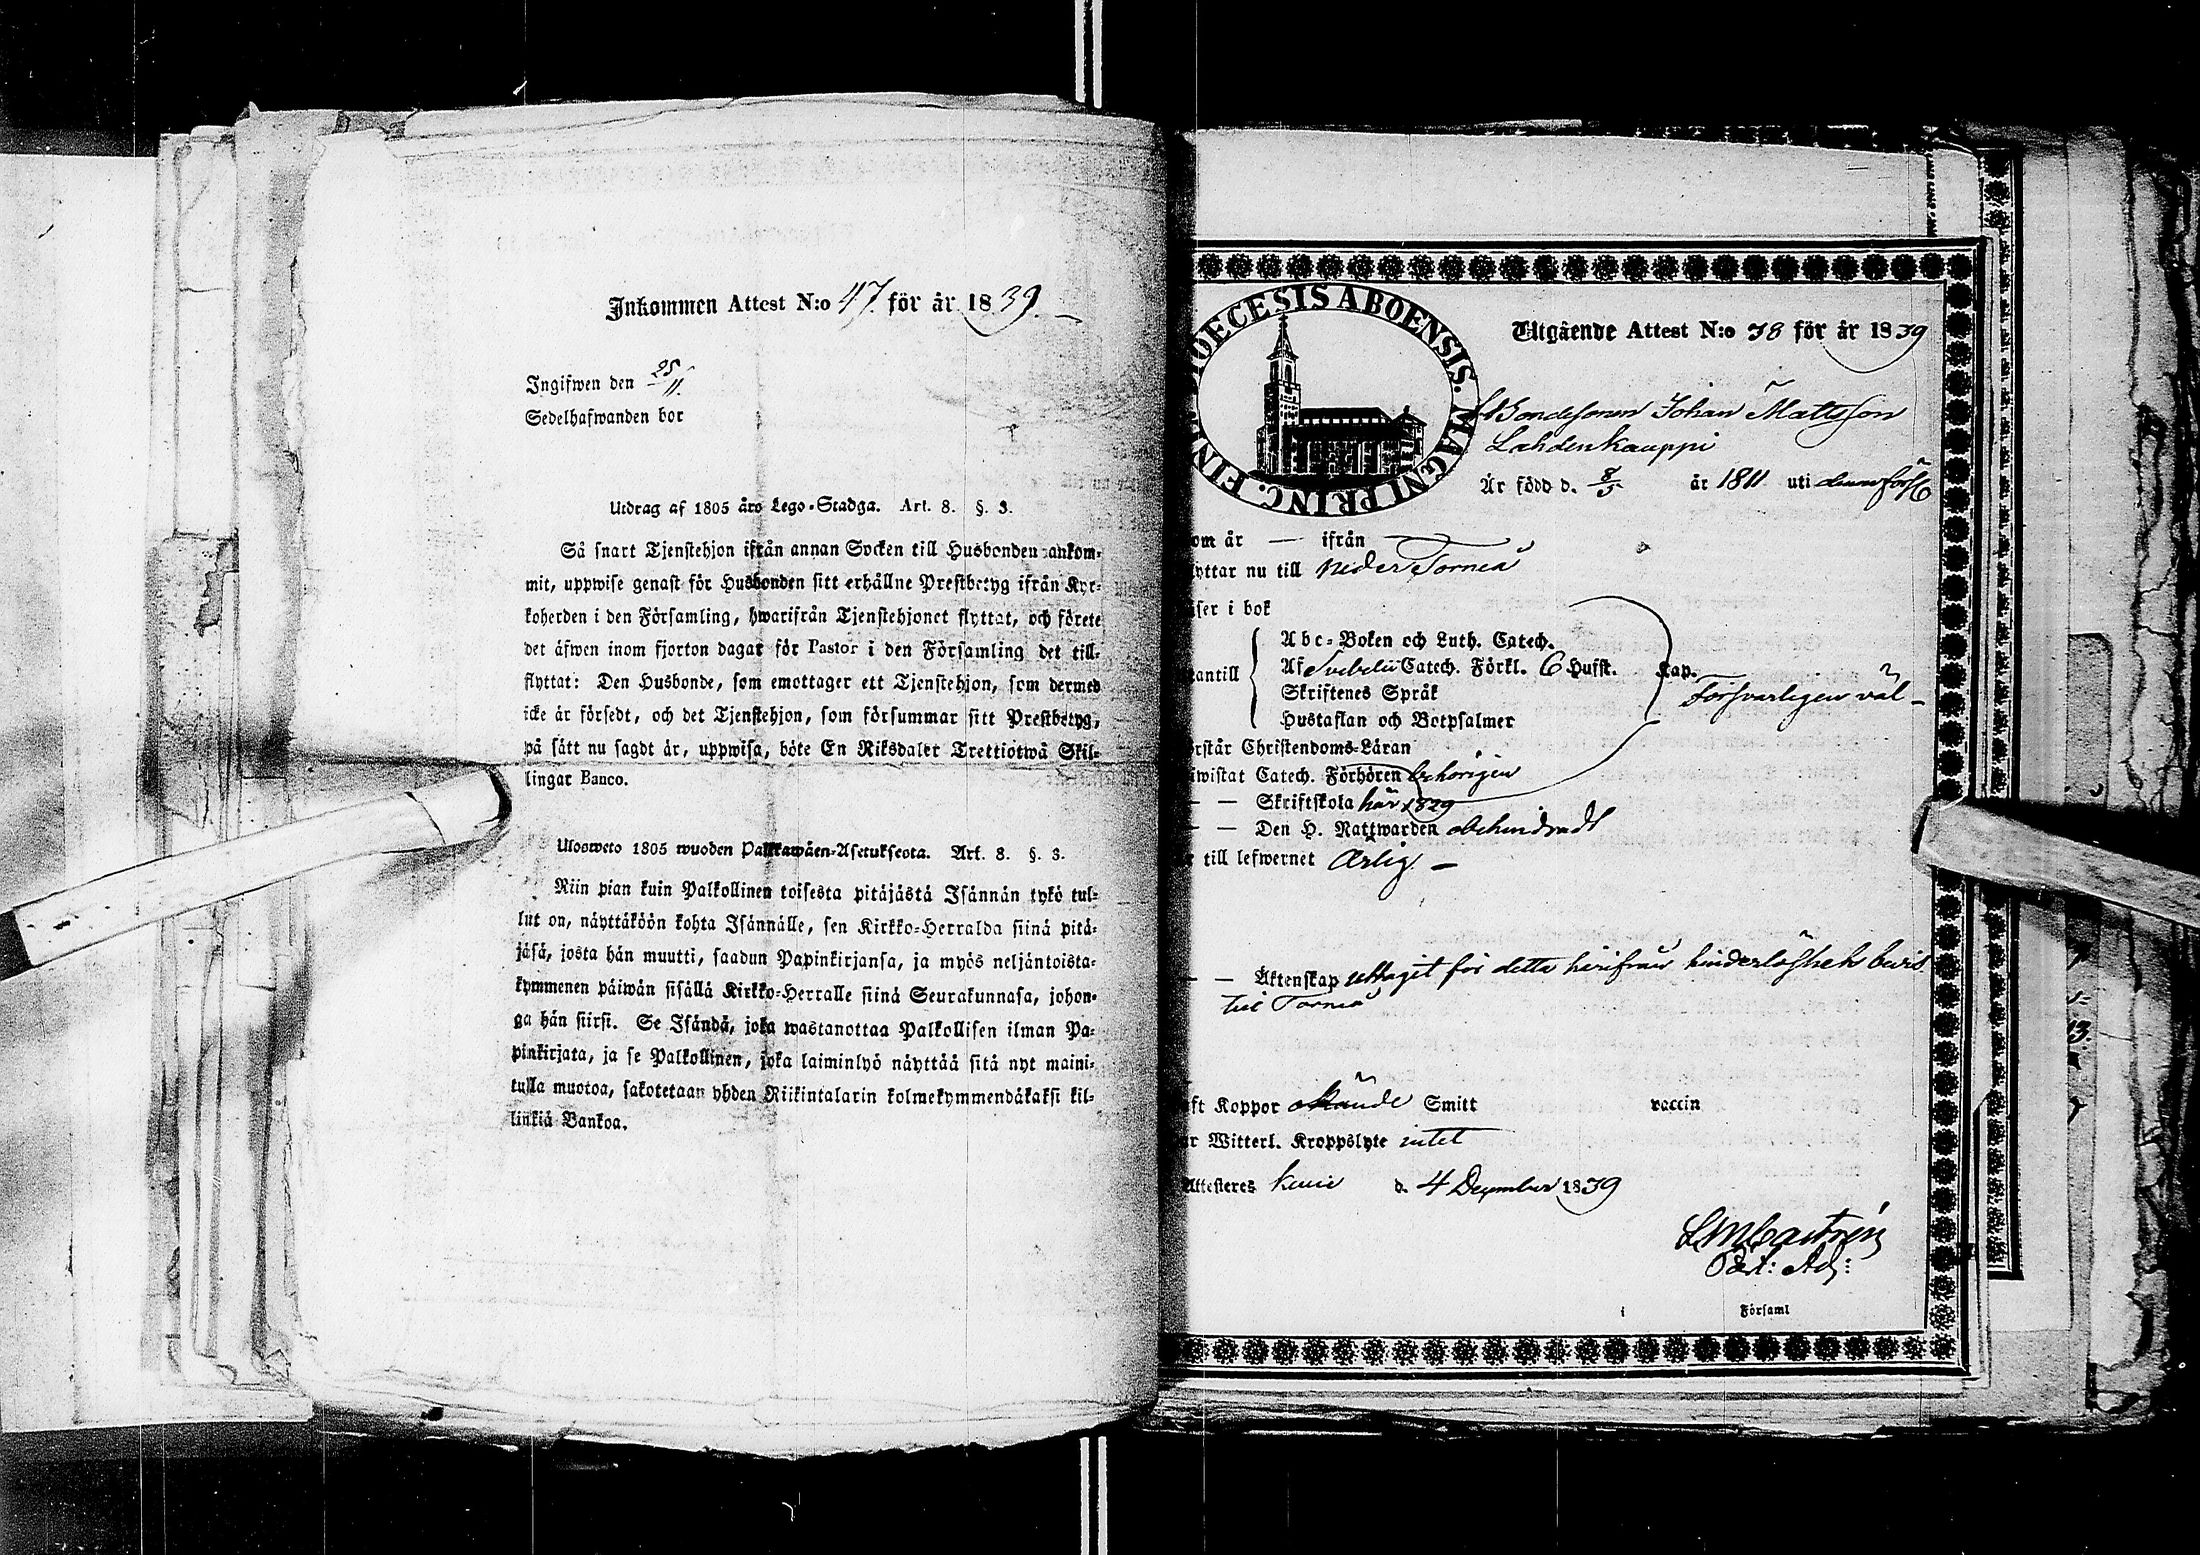 Inkommen Attest N:o 47. för år 1839.
Ingifwen den 25/11.
Sedelhafwanden bor
Utdrag af 1805 års Lego-Stadga. Art. 8. §. 3.
Så snart Tjenstehjon ifrån annan Socken till Husbonden ankom-
mit, uppwise genast för Husbonden sitt erhållne Prestbetyg ifrån Kyr-
koherden i den Församling, hwarifrån Tjenstehjonet flyttat, och förete
det äfwen inom fjorton dagar för Pastor i den Församling det till-
flyttat: Den Husbonde, som emottager ett Tjenstehjon, som dermed
icke är försedt, och det Tjenstehjon, som försummar sitt Prestbetyg,
på sätt nu sagdt är, uppwisa, böte En Riksdaler Trettiotwå Skil-
lingar Banco.
Ulosweto 1805 wuoden Palkkawäen-Asetuksesta. Art. 8. §. 3.
Niin pian kuin Palkollinen toisesta pitäjästä Isännän tykö tul-
lut on, näyttäköön kohta Isännälle, sen Kirkko-Herralda siinä pitä-
jäsä, josta hän muutti, saadun Papinkirjansa, ja myös neljäntoista-
kymmenen päiwän sisällä Kirkko-Herralle siinä Seurakunnasa, johon-
ga hän siirsi. Se Isändä, joka wastanottaa Palkollisen ilman Pa-
pinkirjata, ja se Palkollinen, joka laiminlyö näyttää sitä nyt maini-
tulla muotoa, sakotetaan yhden Riikintalarin kolmekymmendäkaksi kil-
linkiä Bankoa.
DIOECESIS ABOENSIS. MAGNI PRINC. FINL
Utgående Attest N:o 78 för år 1839
Bondesonen Johan Mattsson
Lahdenkauppi
Är född d. 8/5 år 1811 uti denna förs
om år — ifrån —
yttar nu till Neder Torneå
äser i bok
Abc-Boken och Luth. Catech.
antill Af Svebelii Catech. Förkl. 6 Hufst. Kap.
Skriftenes Språk
Försvarligen väl -
Hustaflan och Botpsalmer
rstår Christendoms-Läran
wistat Catech. Förhören behörigen
— Skriftskola här 1829
— Den H. Nattwarden obehindradt
till lefwernet Ärlig. —
— — Äktenskap uttaget för detta härifrån hinderlöshets bevis
till Torneå
ft Koppor okände Smitt vaccin
r Witterl. Kroppslyte intet
Attesteres Kemi d. 4 December 1839
Castrén
Past: Adj:
i Församl